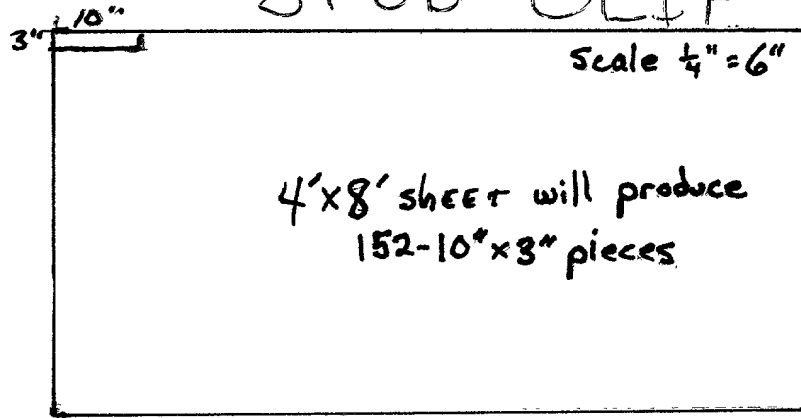 STUD CLIP
10"
3"
Scale ¼" = 6"
4'x8' shEET will produce
152-10"x3" pieces